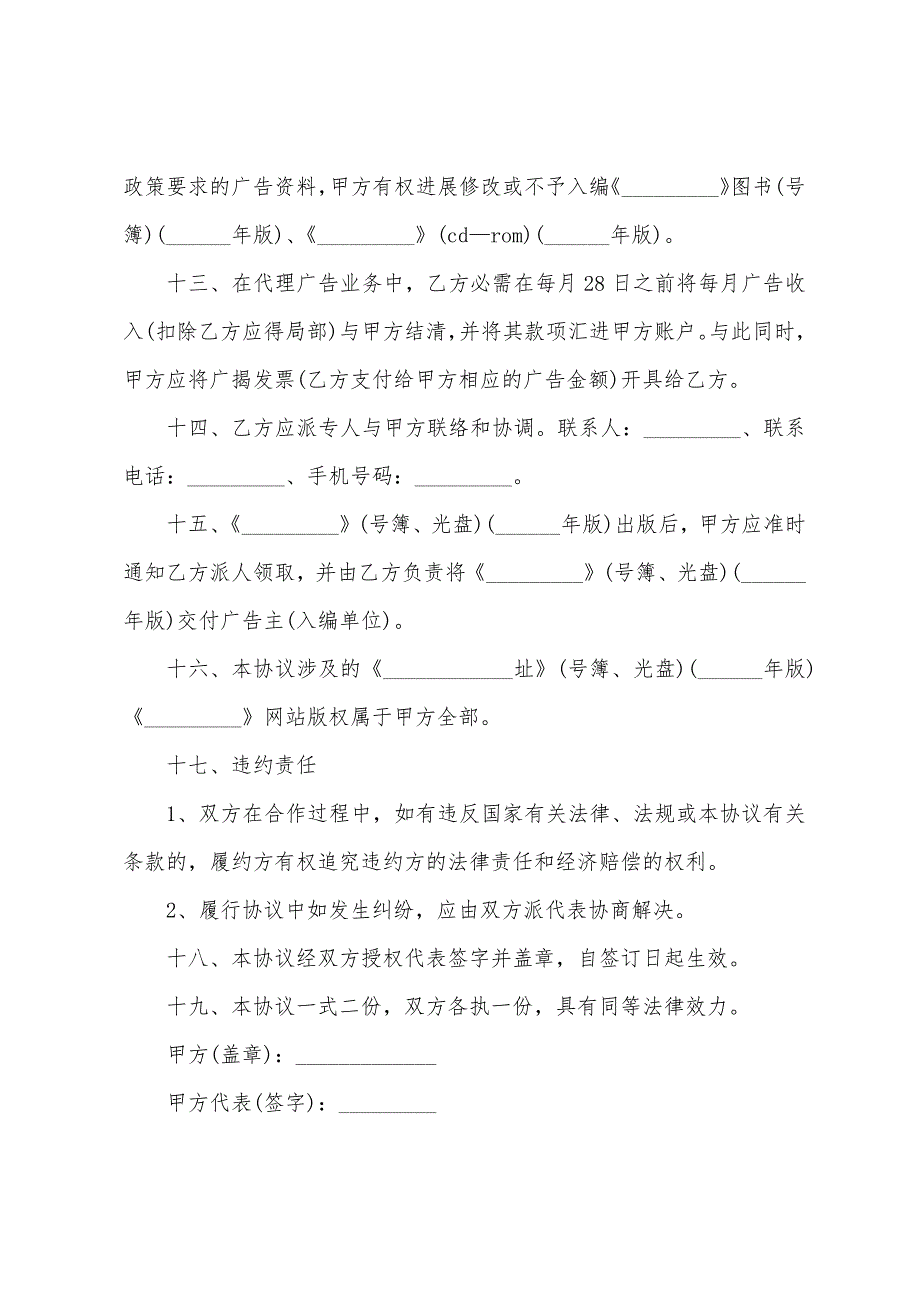 政策要求的广告资料,甲方有权进展修改或不予入编《_________》图书(号
簿)(______年版)、《_________》(cd—rom)(______年版)。
十三、在代理广告业务中，乙方必需在每月28日之前将每月广告收
入(扣除乙方应得局部)与甲方结清,并将其款项汇进甲方账户。与此同时,
甲方应将广揭发票(乙方支付给甲方相应的广告金额)开具给乙方。
十四、乙方应派专人与甲方联络和协调。联系人：_________、联系
电话：_________、手机号码：_________。
十五、《_________》(号簿、光盘)(______年版)出版后，甲方应准时
通知乙方派人领取，并由乙方负责将《_________》(号簿、光盘)(______
年版)交付广告主(入编单位)。
十六、本协议涉及的《____________址》(号簿、光盘)(______年版)
《_________》网站版权属于甲方全部。
十七、违约责任
1、双方在合作过程中，如有违反国家有关法律、法规或本协议有关
条款的，履约方有权追究违约方的法律责任和经济赔偿的权利。
2、履行协议中如发生纠纷，应由双方派代表协商解决。
十八、本协议经双方授权代表签字并盖章，自签订日起生效。
十九、本协议一式二份，双方各执一份，具有同等法律效力。
甲方(盖章)：_____________
甲方代表(签字)：_________